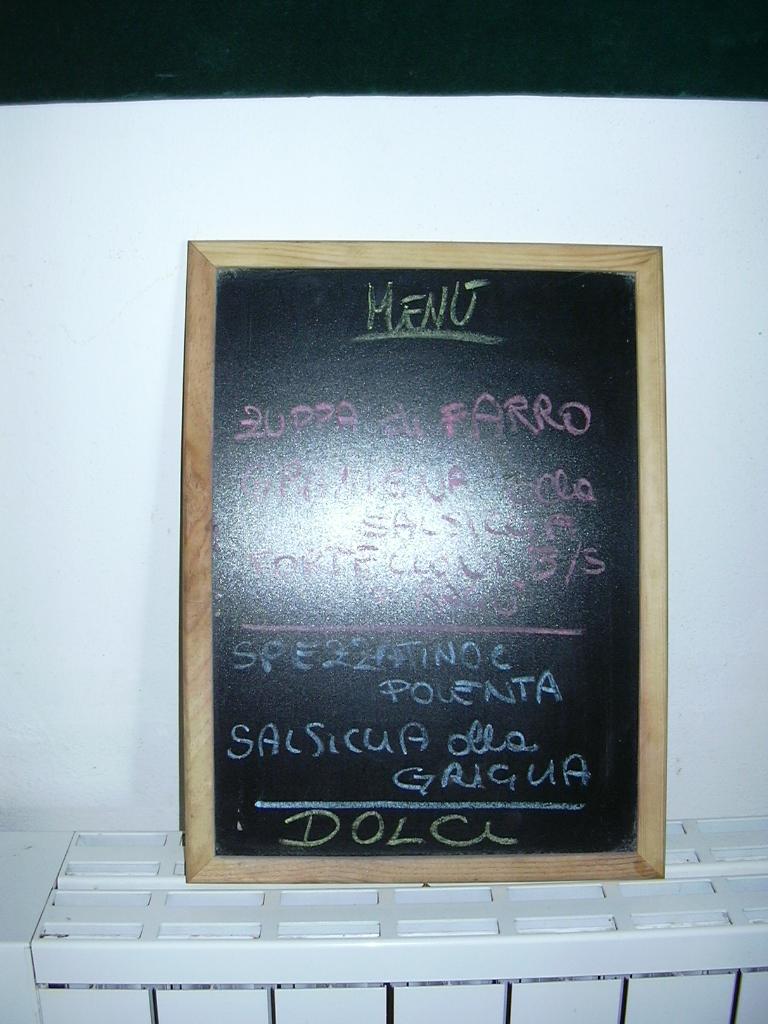 MENÙ
ZUPPA di FARRO
alla
SALSICCIA
TORTELLONI B/S
RAGÙ
SPEZZATINO e
POLENTA
SALSICCIA alla
GRIGLIA
DOLCI